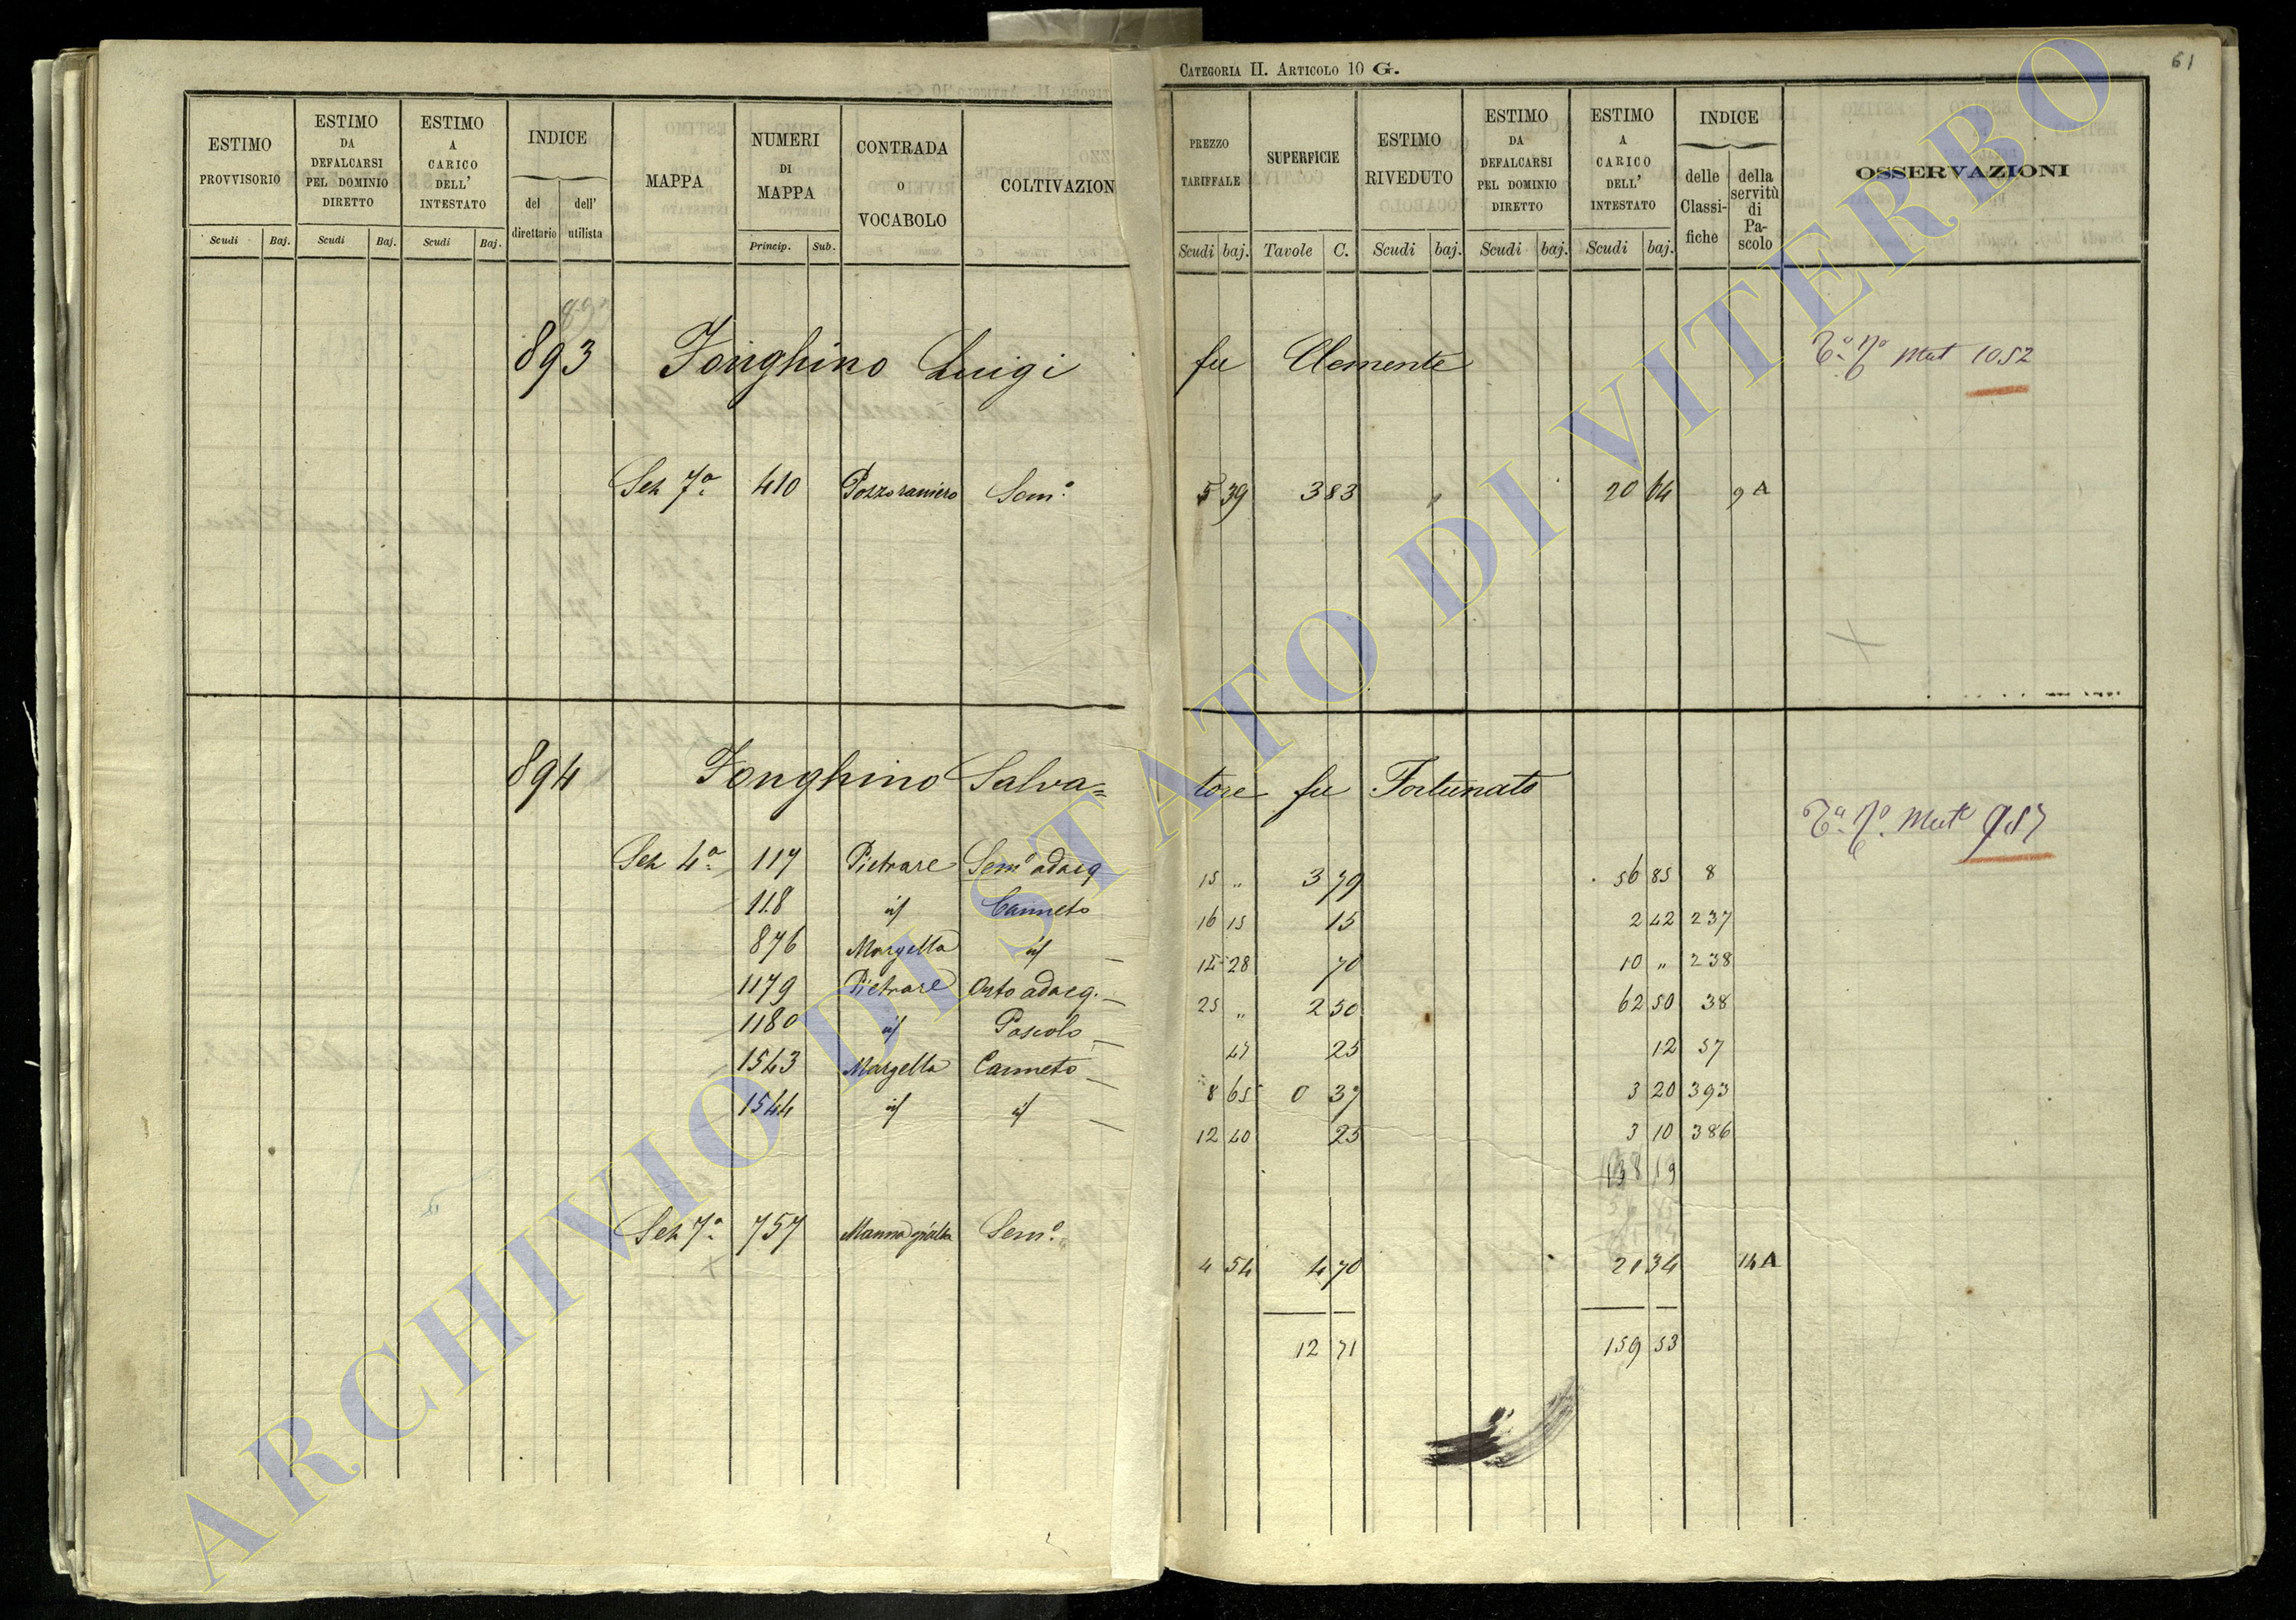 CATEGORIA II. ARTICOLO 10 G.
61
ESTIMO PROVVISORIO
Scudi Baj.
ESTIMO DA DEFALCARSI PEL DOMINIO DIRETTO
Scudi Baj.
ESTIMO A CARICO DELL' INTESTATO
Scudi Baj.
INDICE
del direttario
dell' utilista
MAPPA
NUMERI DI MAPPA
Princip. Sub.
CONTRADA O VOCABOLO
COLTIVAZION
PREZZO TARIFFALE
Scudi baj.
SUPERFICIE
Tavole C.
ESTIMO RIVEDUTO
Scudi baj.
ESTIMO DA DEFALCARSI PEL DOMINIO DIRETTO
Scudi baj.
ESTIMO A CARICO DELL' INTESTATO
Scudi baj.
INDICE
delle Classifiche
della servitù di Pascolo
OSSERVAZIONI
893 Fonghino Luigi fu Clemente Mut 1052
Sez 7ª 410 Pozzoraniero Sem° 5 39 3 83 20 64 9 A
894 Fonghino Salva= tore fu Fortunato
Mut 987
Sez 4ª 117 Pietrare Sem° adacq 15 „ 3 79 56 85 8
118 id Canneto 16 15 15 2 42 237
876 Margella id 14 28 70 10 „ 238
1179 Pietrare Orto adacq. 25 „ 2 50 62 50 38
1180 id Pascolo 47 25 12 57
1543 Margella Canneto 8 65 0 37 3 20 393
1544 id id 12 40 25 3 10 386
138 19
Sez 7ª 757 Sem° 4 54 4 70 21 34 14 A
12 71 159 53
ARCHIVIO DI STATO DI VITERBO